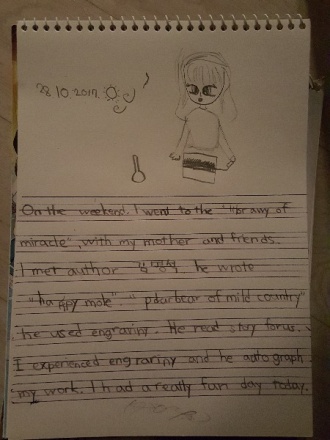 28 10 2017
On the weekend. I went to the "library of
miracle", with my mother and friends.
I met author 김명석. he wrote
"happy mole". " polarbear of mild country"
he used engraving. He read story for us.
I experienced engraving and he autograph
my work. I had a really fun day today.